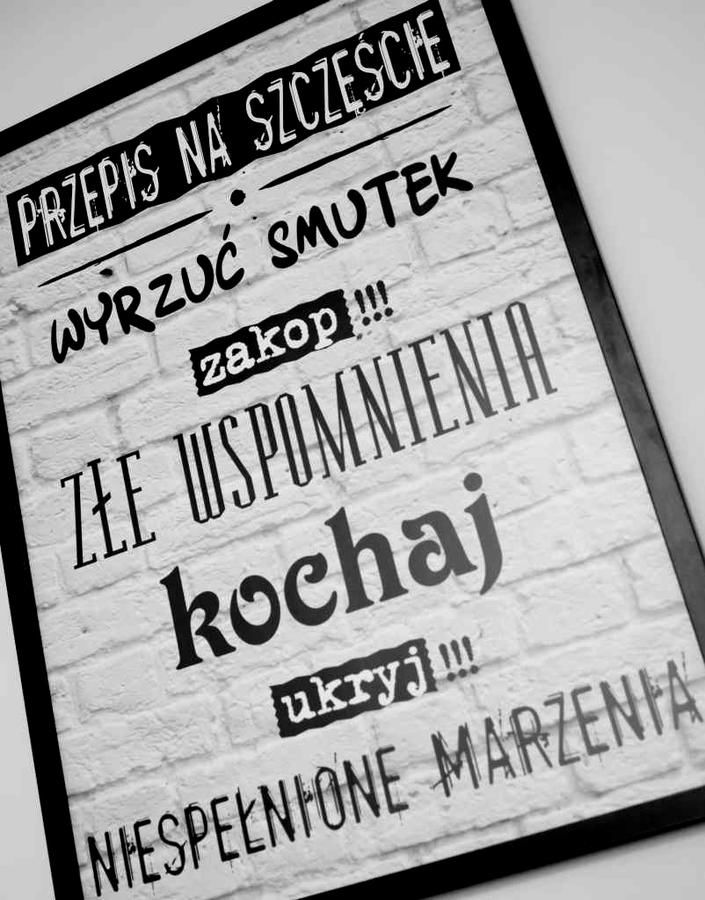 PRZEPIS NA SZCZĘŚCIE
WYRZUĆ SMUTEK
zakop!!!
ZŁE WSPOMNIENIA
kochaj
ukryj!!!
NIESPEŁNIONE MARZENIA